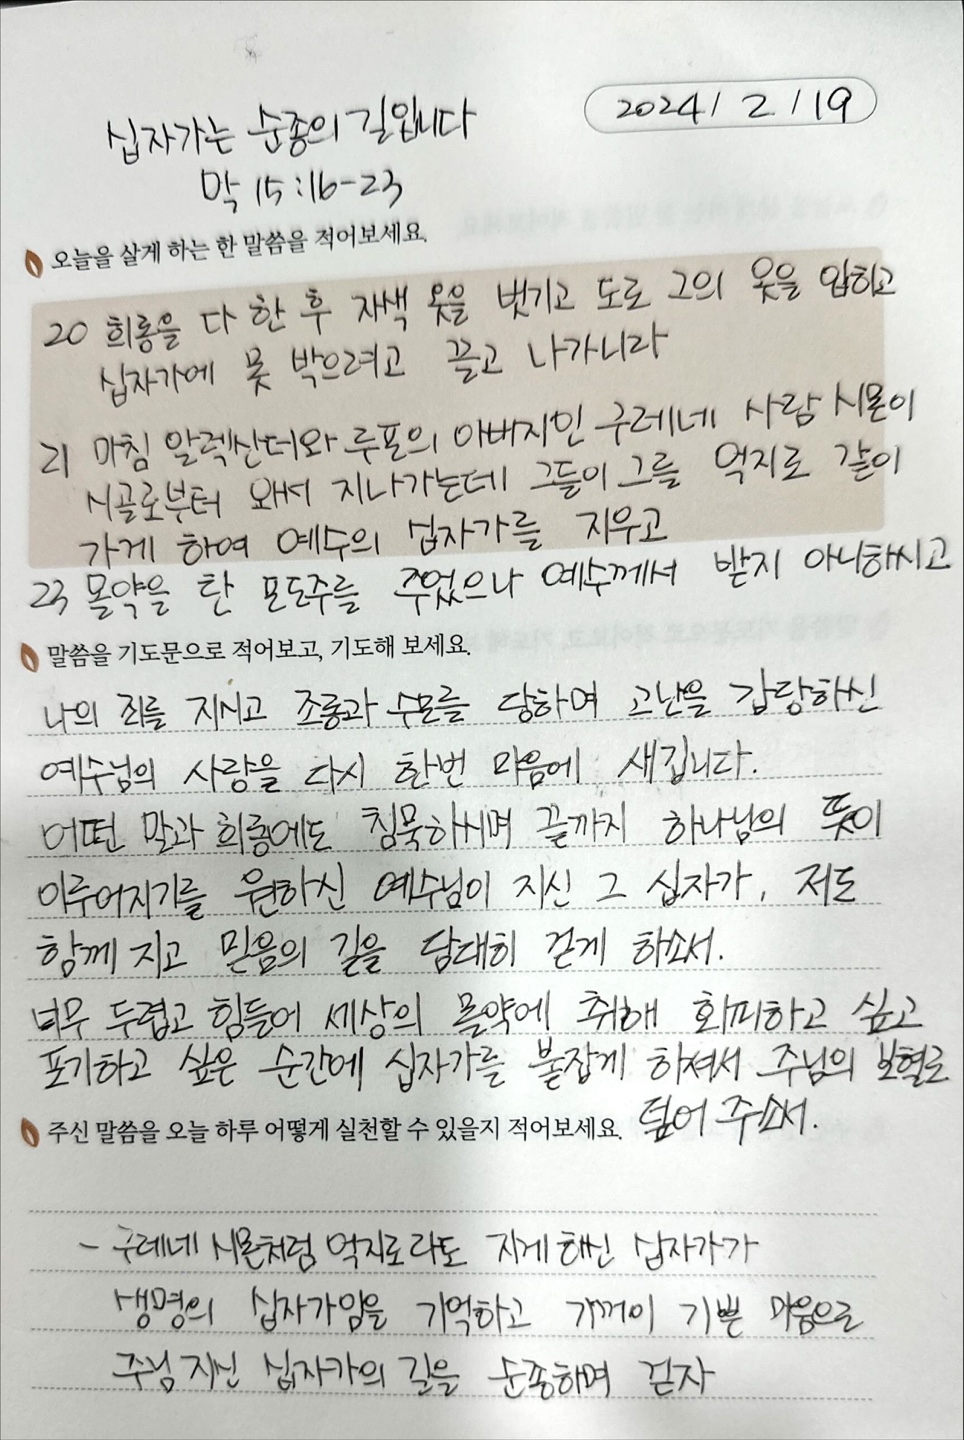 2024 / 2 / 19
십자가는 순종의 길입니다
막 15:16-23
오늘을 살게 하는 한 말씀을 적어보세요.
20 희롱을 다 한 후 자색 옷을 벗기고 도로 그의 옷을 입히고
십자가에 못 박으려고 끌고 나가니라
21 마침 알렉산더와 루포의 아버지인 구레네 사람 시몬이
시골로부터 와서 지나가는데 그들이 그를 억지로 같이
가게 하여 예수의 십자가를 지우고
23 몰약을 탄 포도주를 주었으나 예수께서 받지 아니하시고
말씀을 기도문으로 적어보고, 기도해 보세요.
나의 죄를 지시고 조롱과 수모를 당하며 고난을 감당하신
예수님의 사랑을 다시 한번 마음에 새깁니다.
어떤 말과 희롱에도 침묵하시며 끝까지 하나님의 뜻이
이루어지기를 원하신 예수님이 지신 그 십자가, 저도
함께 지고 믿음의 길을 담대히 걷게 하소서.
너무 두렵고 힘들어 세상의 몰약에 취해 회피하고 싶고
포기하고 싶은 순간에 십자가를 붙잡게 하셔서 주님의 보혈로
덮어 주소서.
주신 말씀을 오늘 하루 어떻게 실천할 수 있을지 적어보세요.
- 구레네 시몬처럼 억지로라도 지게 하신 십자가가
생명의 십자가임을 기억하고 기꺼이 기쁜 마음으로
주님 지신 십자가의 길을 순종하며 걷자